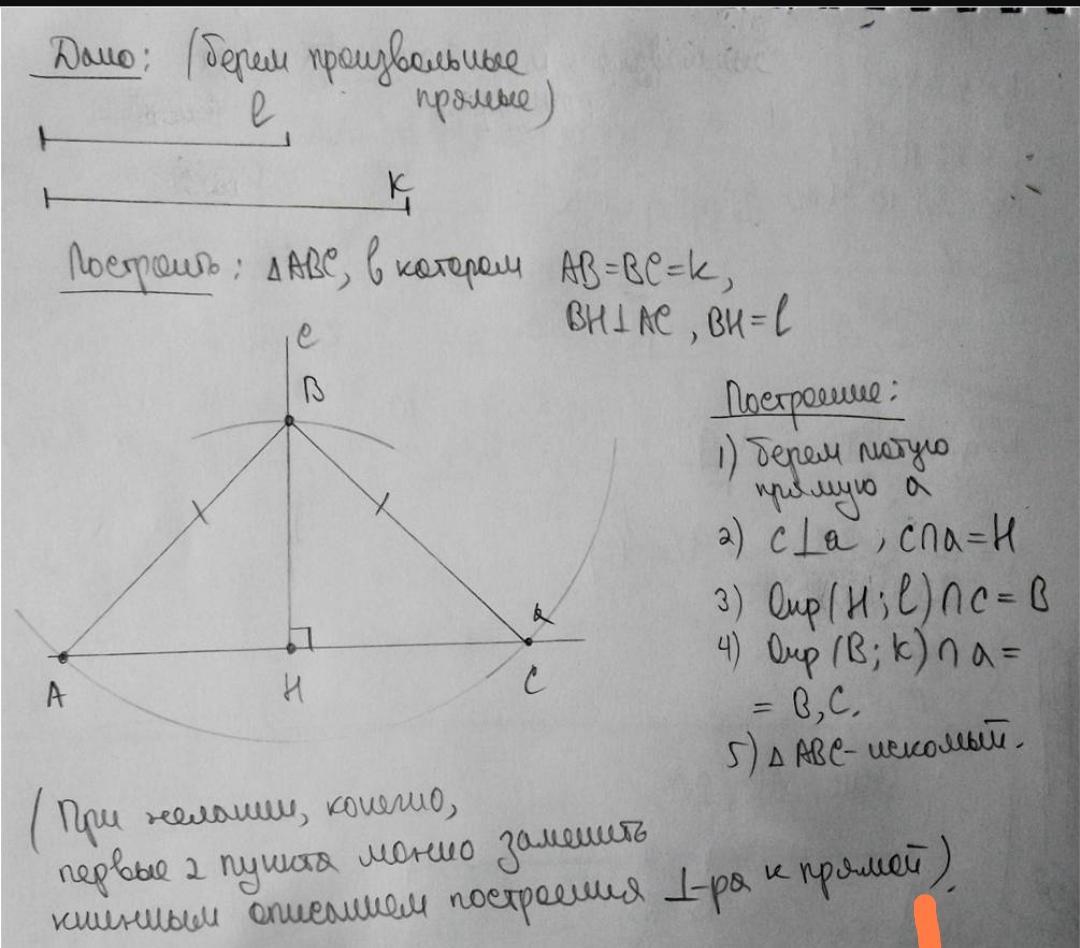 Дано: (берем произвольные
прямые)
l
k
Построить: △ABC, в котором AB=BC=k,
BH⊥AC, BH=l
c
B
A
H
C
a
Построение:
1) берем любую
прямую a
2) c⊥a, c∩a=H
3) Окр(H; l)∩c=B
4) Окр(B; k)∩a=
=B,C.
5) △ABC- искомый.
(При желании, конечно,
первые 2 пункта можно заменить
книжным описанием построения ⊥-ра к прямой).